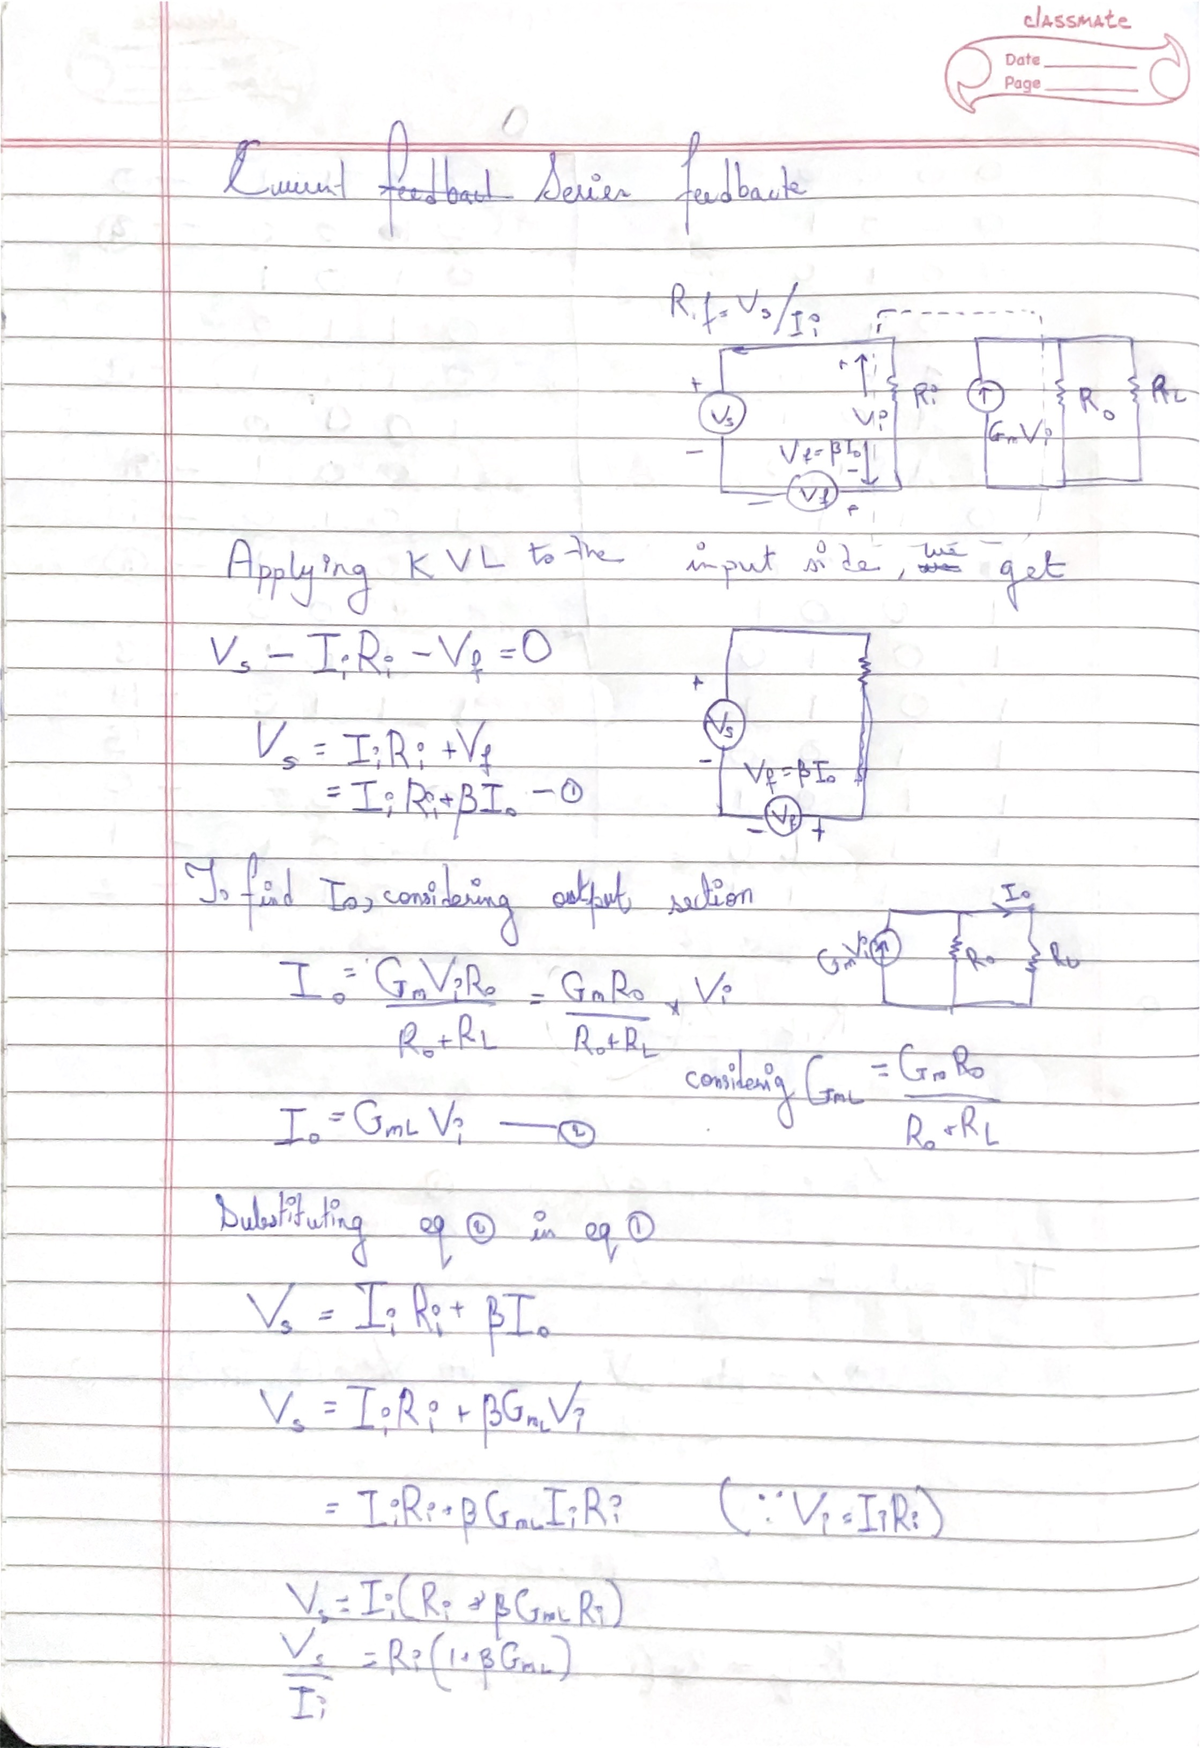 classmate
Date
Page
Current feedback Series feedback
Rif = Vs/Ii
+ Vs - + Vi - Ri GmVi Ro RL
Vf = βIo
- Vf +
Applying KVL to the input side, we get
Vs - IiRi - Vf = 0
Vs = IiRi + Vf
= IiRi + βIo - ①
+ Vs -
Vf = βIo
- Vf +
To find Io, considering output section
Io
GmVi Ro RL
Io = GmViRo / Ro + RL = GmRo / Ro + RL × Vi
considerig GmL = GmRo / Ro + RL
Io = GmL Vi — ②
Substituting eq ② in eq ①
Vs = IiRi + βIo
Vs = IiRi + βGmLVi
= IiRi + βGmLIiRi (∵ Vi = IiRi)
Vs = Ii(Ri + βGmLRi)
Vs / Ii = Ri(1 + βGmL)